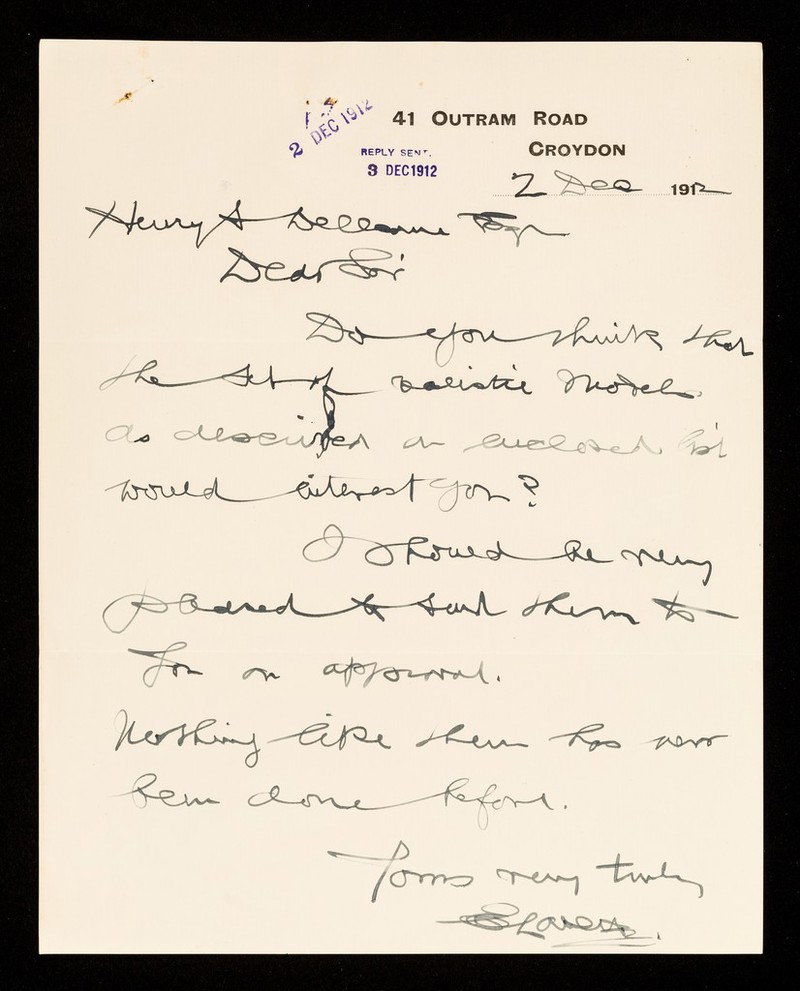 2 DEC 1912
41 OUTRAM ROAD
REPLY SENT.
CROYDON
3 DEC 1912
2 Dec 1912
Henry S Wellcome Esqr
Dear Sir
Do you think that
the set of realistic models
as described on enclosed list
would interest you?
I should be very
pleased to send them to
you on approval.
Nothing like them has ever
been done before.
Yours very truly